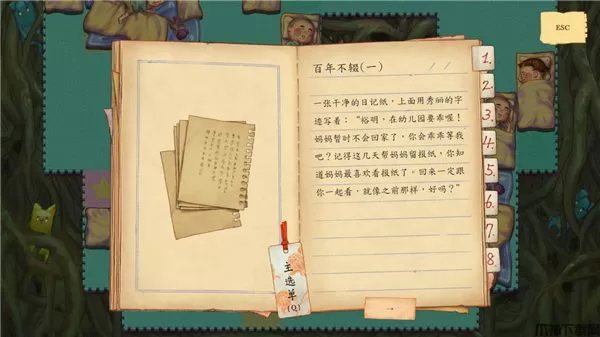 ESC
百年不辍(一)
一张干净的日记纸，上面用秀丽的字
迹写着：“裕明，在幼儿园要乖喔！
妈妈暂时不会回家了，你会乖乖等我
吧？记得这几天帮妈妈留报纸，你知
道妈妈最喜欢看报纸了。回来一定跟
你一起看，就像之前那样，好吗？”
1.
2
3.
4.
5.
6.
7.
8
主选单
(Q)